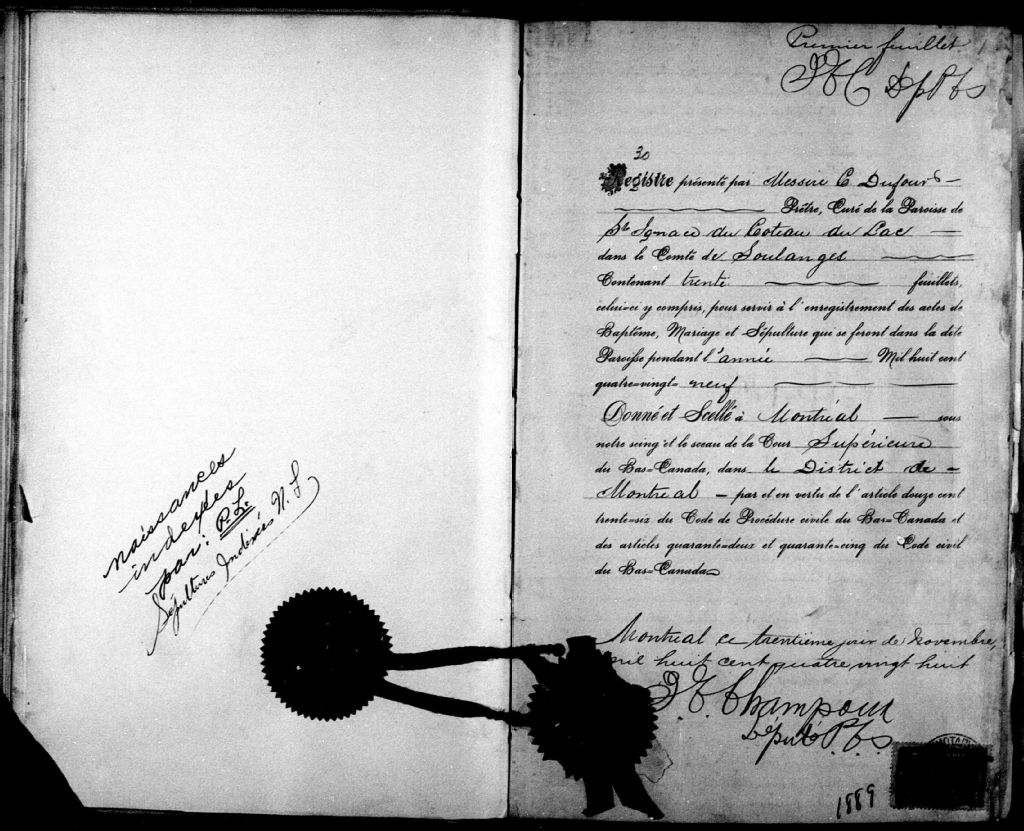 naissances
indexées
par: R.L.
Sépultures Indexées N. L
Premier feuillet
Dép P t s
30
Registre présenté par Messire C Dufour
Prêtre, Curé de la Paroisse de
St Ignace du Coteau du Lac
dans le Comté de Soulanges
Contenant trente feuillets,
celui=ci y compris, pour servir à l'enregistrement des actes de
Baptême, Mariage et Sépulture qui se feront dans la dite
Paroisse pendant l'année Mil huit cent
quatre=vingt= neuf
Donné et Scellé à Montréal sous
notre seing et le sceau de la Cour Supérieure
du Bas=Canada, dans le District de
Montreal par et en vertu de l'article douze cent
trente=six du Code de Procédure civile du Bas=Canada et
des articles quarante=deux et quarante=cinq du Code civil
du Bas=Canada
Montreal ce trentième jour de Novembre,
mil huit cent quatre vingt huit
Champoux
Député P t s
1889